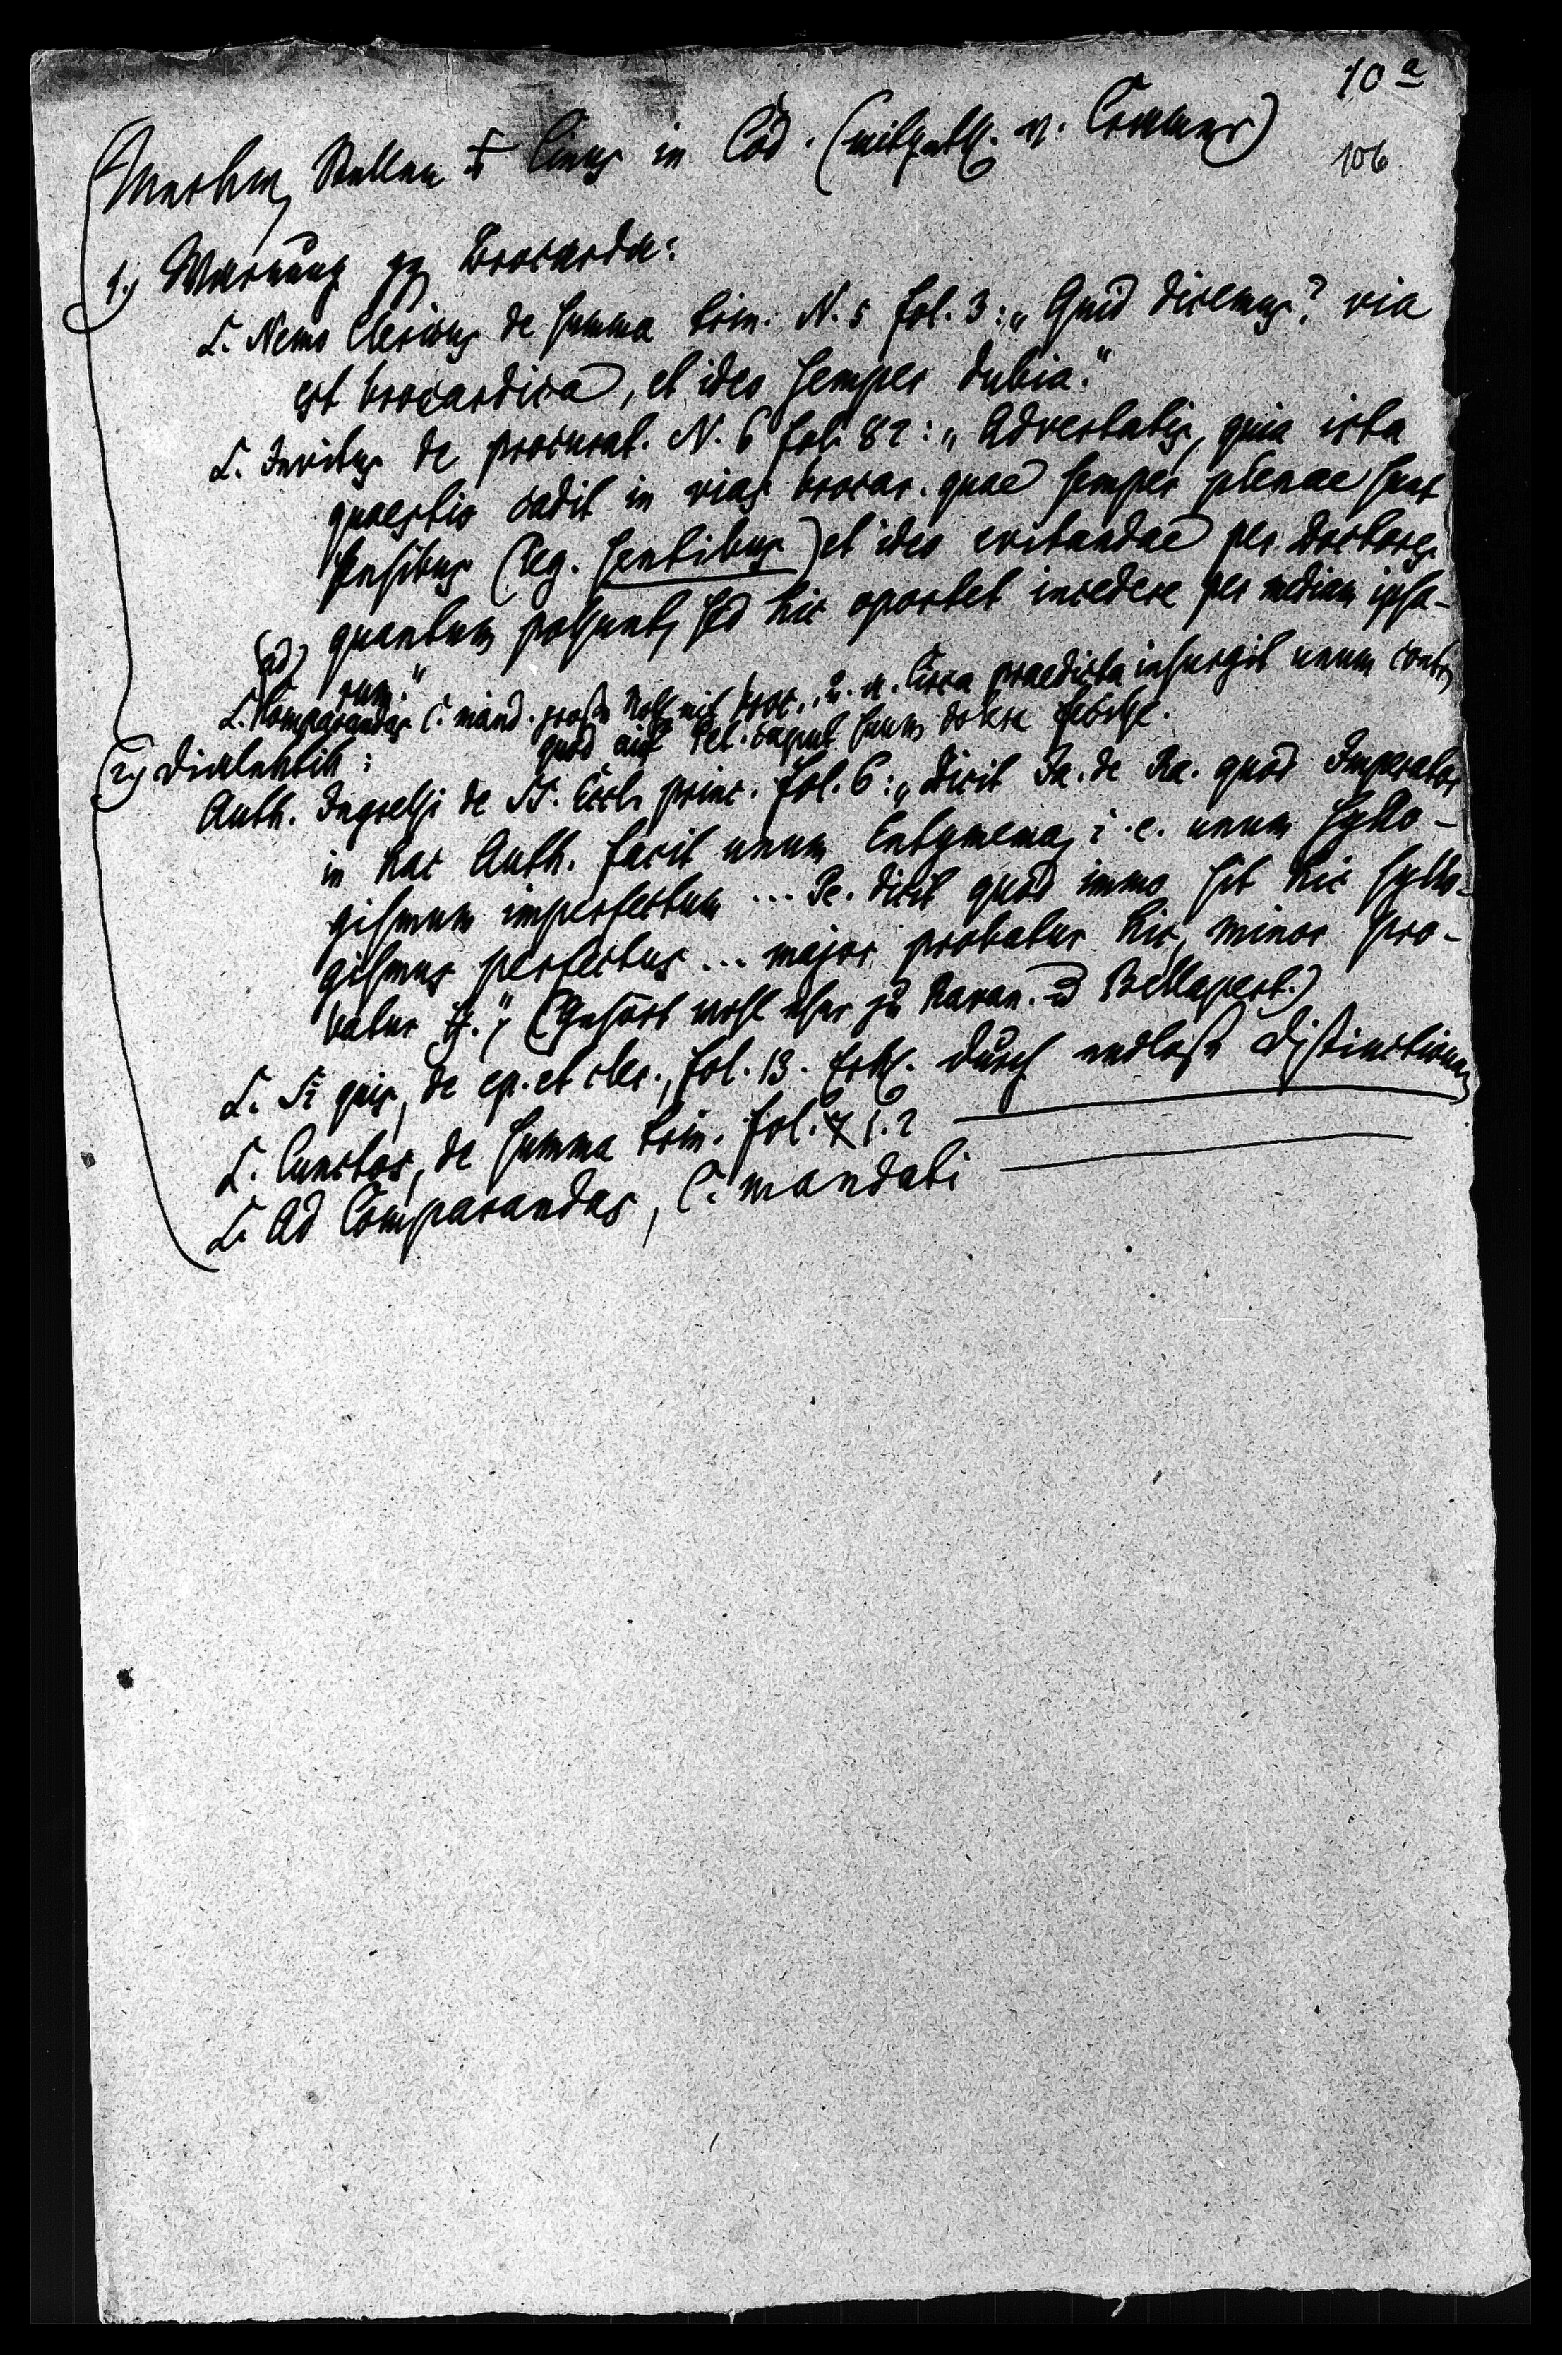 10 a
106
Merkw. Stellen Cinus in Cod. (mitgeth. v. Cramer)
1.) Warnung gg Brocarda:
L. Nemo Clericus de summa trin. N. 5 fol. 3: „Quid dicemus? via
est brocardica, et ideo semper dubia."
L. Invitus de procurat. N. 6 fol. 82: „Advertatis, quia ista
quaestio cadit in vias brocar. quae semper plenae sunt
sensibus (leg. sentibus) et ideo evitandae per doctores
quantum possunt, sed hic oportet incedere per mediam ipsa-
rum."
(ad)
L. Comparandas C. mand. große mit broc., u. a. Circa praedicta insurgit unum contr.
quod Pet. caput suum dolere
2.) Dialektik:
Auth. Ingressi de SS. Eccl. princ. fol. 6: „Dicit Ja. de Ra. quod Imperator
in hac Auth. facit unum Entymema, i. e. unum syllo-
gismum imperfectum ... Pe. dicit quod immo sit hic syllo-
gismus perfectus ... major probatur hic, minor pro-
batur ff." (Gehört wohl eher zu Ravan. Bellapert.)
L. Si quis, de ep. et cler., fol. 13. durch endlose Distinctionen
L. Cunctos, de summa trin. fol. 1. 2 ———
L. Ad Comparandas, C. mandati ———